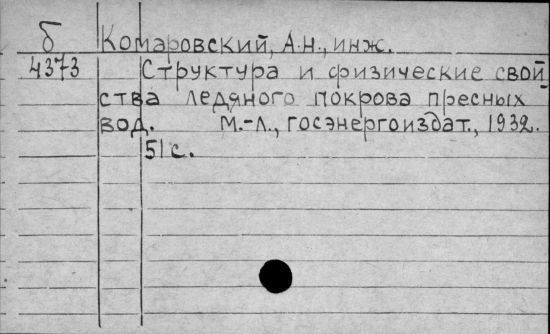 б Комаровский, А.Н., инж.
4373 Структура и физические свой-
ства ледяного покрова пресных
вод. М.-Л., госэнергоиздат., 1932.
51 с.